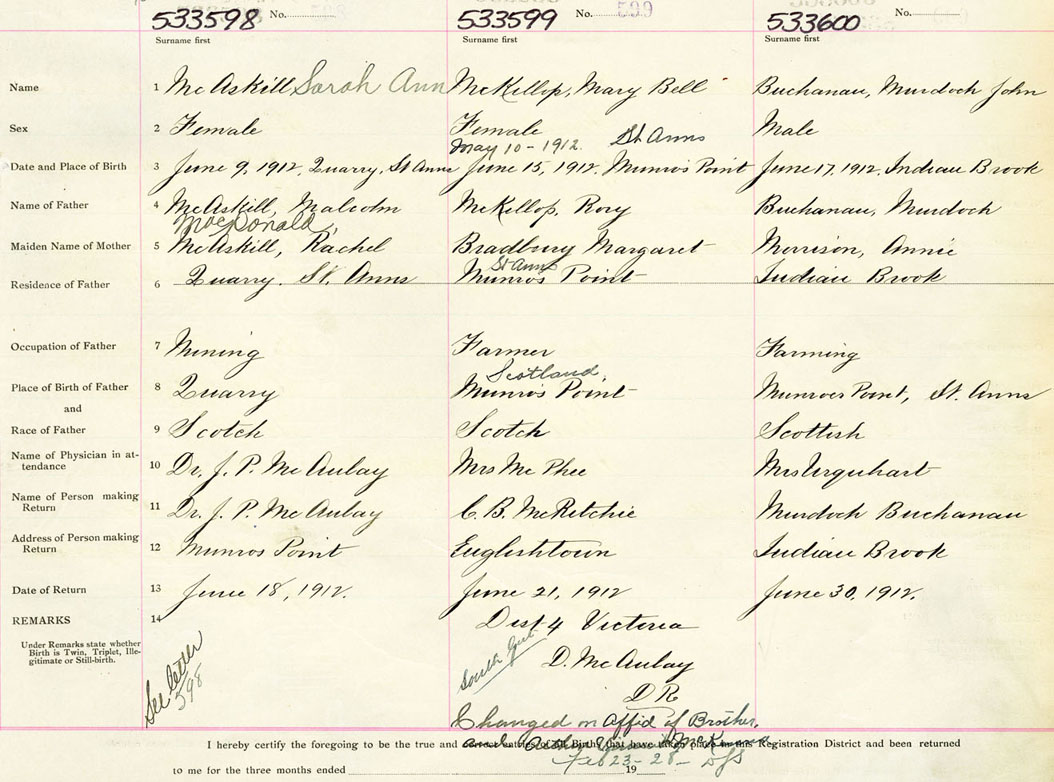 533598 No. 533599 No. 599 533600 No.
Surname first Surname first Surname first
Name 1 McAskill, Sarah Ann McKillop, Mary Bell Buchanan, Murdoch John
Sex 2 Female Female Male
May 10 - 1912. St Anns
Date and Place of Birth 3 June 9, 1912, Quarry, St Anns June 15, 1912, Munros Point June 17, 1912, Indian Brook
Name of Father 4 McAskill, Malcolm McKillop, Rory Buchanan, Murdoch
MacDonald,
Maiden Name of Mother 5 McAskill, Rachel Bradbury Margaret Morrison, Annie
St Anns
Residence of Father 6 Quarry. St. Anns Munros Point Indian Brook
Occupation of Father 7 Mining Farmer Farming
Scotland,
Place of Birth of Father 8 Quarry Munros Point Munroes Point, St. Anns
and
Race of Father 9 Scotch Scotch Scottish
Name of Physician in at-
tendance 10 Dr. J. P. McAulay Mrs McPhee Mrs Urquhart
Name of Person making
Return 11 Dr. J. P. McAulay C. B. McRitchie Murdoch Buchanan
Address of Person making
Return 12 Munros Point Englishtown Indian Brook
Date of Return 13 June 18, 1912. June 21, 1912 June 30, 1912.
REMARKS 14 Dist 4 Victoria
Under Remarks state whether
Birth is Twin, Triplet, Ille-
gitimate or Still-birth.
See letter
598
South Gut
D. McAulay
D R
Changed on Affid of Brother,
I hereby certify the foregoing to be the true and correct entries of all Births that have taken place in this Registration District and been returned
Feb 23-28-
to me for the three months ended 19